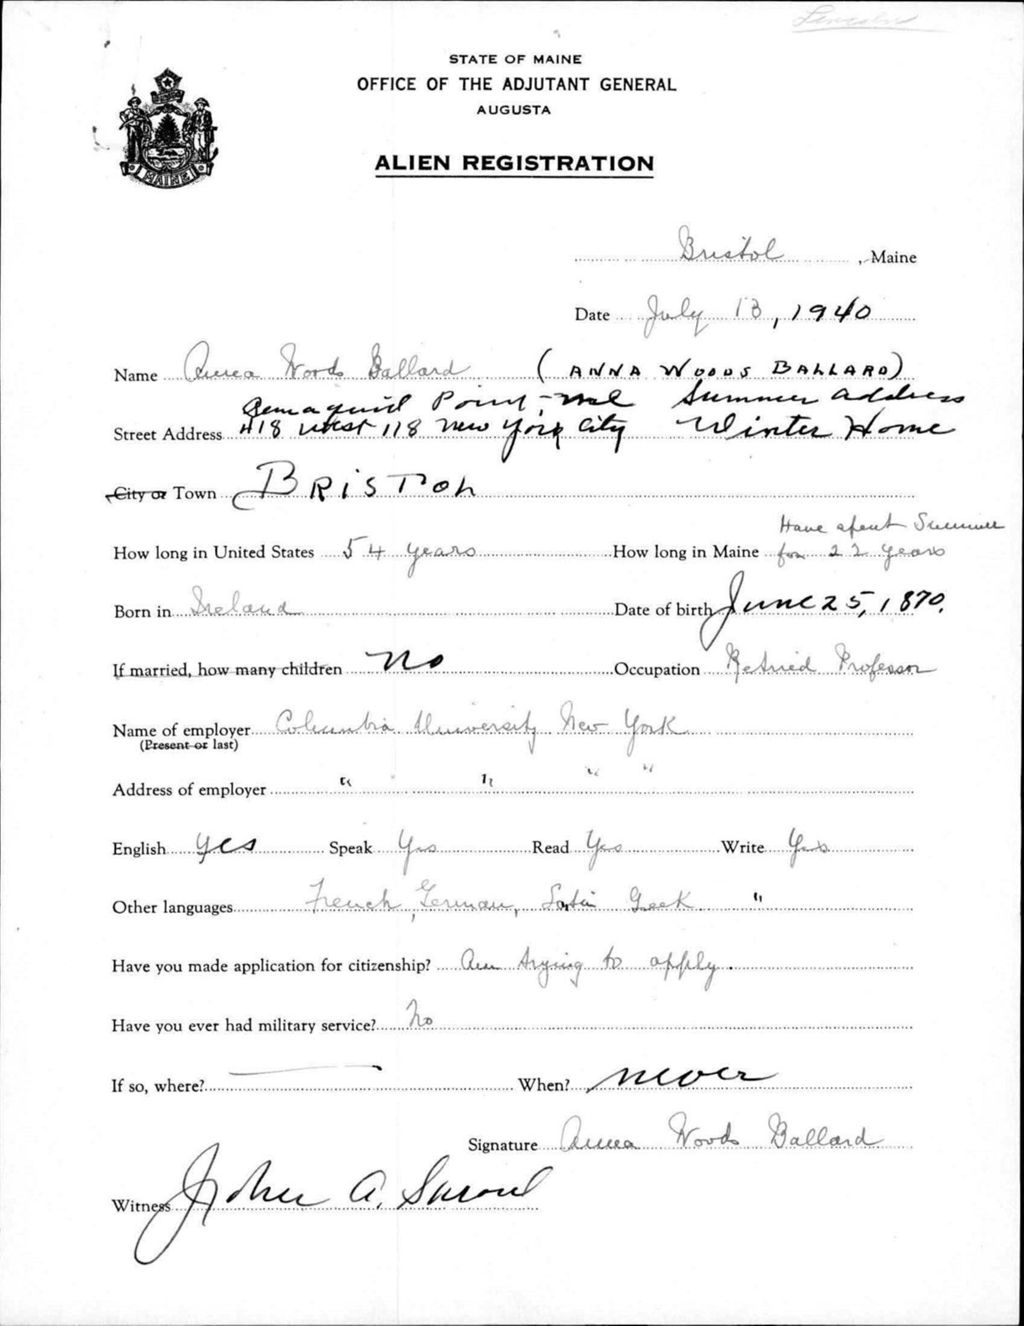 Lincoln
STATE OF MAINE
OFFICE OF THE ADJUTANT GENERAL
AUGUSTA
MAINE
ALIEN REGISTRATION
Bristol, Maine
Date July 13, 1940
Name Anna Woods Ballard (ANNA WOODS BALLARD)
Pemaquid Point, Me Summer address
Street Address 418 West 118 New York City Winter Home
City or Town BRISTOL
Have spent Summer
How long in United States 54 years How long in Maine for 22 years
Born in Ireland Date of birth June 25, 1870.
If married, how many children No Occupation Retired Professor
Name of employer Columbia University New York
(Present or last)
Address of employer " " " "
English Yes Speak Yes Read Yes Write Yes
Other languages French, German, Latin Greek "
Have you made application for citizenship? Am trying to apply.
Have you ever had military service? No
If so, where? — When? never
Signature Anna Woods Ballard
Witness John A. Sproul